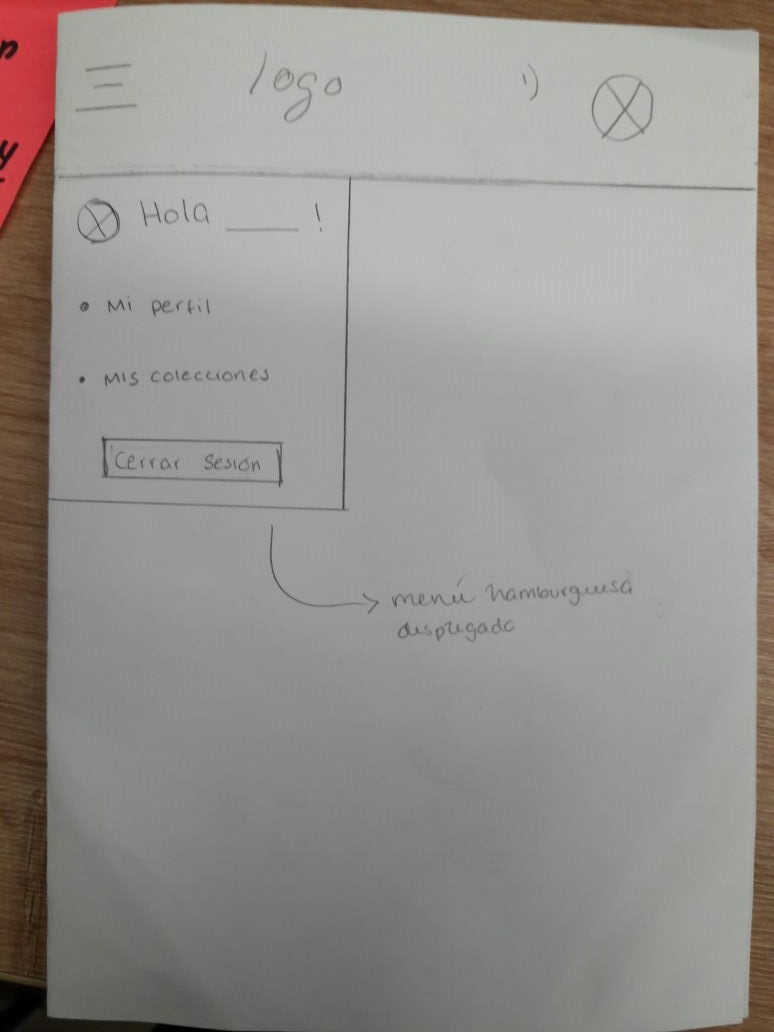 logo
1)
Hola ____ !
• Mi perfil
• Mis colecciones
Cerrar Sesión
menú hamburguesa
desplegado